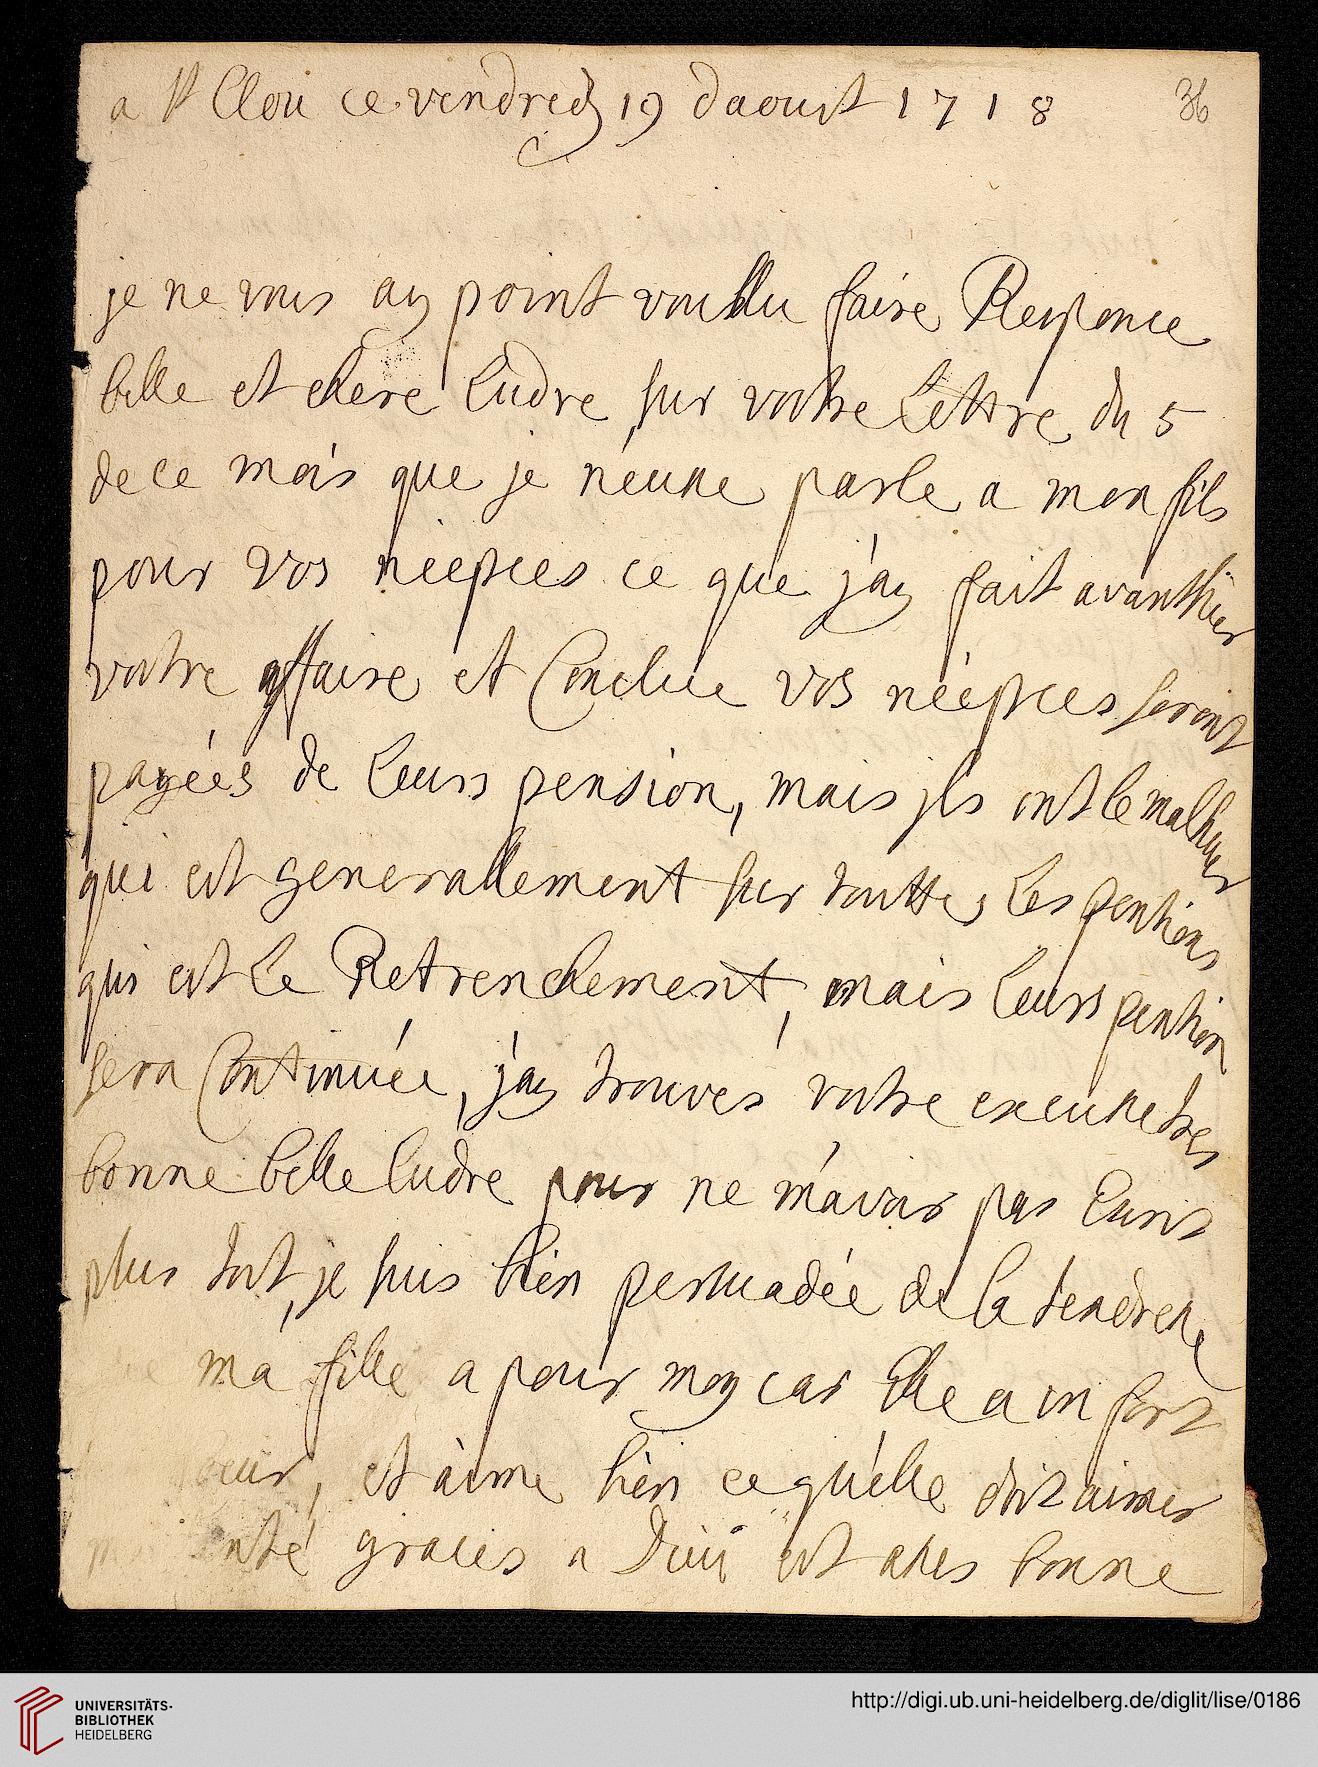 a St Clou ce vendredy 19 daoust 1718
36
je ne vous ay point voullu faire Responce
belle et chere Ludre sur vostre Lettre du 5
de ce mois que je n'eusse parle a mon fils
pour vos niepces ce que j'ay fait avanthier
vostre affaire est Conclue vos niepces seront
payées de leurs pension, mais jls ont le malheur
qui est generallement sur touttes les pentions
qui est le Retrenchement, mais leurs pention
sera Continuée, j'ay trouvés vostre excusse tres
bonne belle ludre pour ne m'avoir pas Escrit
plus tost, je suis bien persuadée de la tendresse
ma fille a pour moy car Elle a un fort
coeur, et aime bien ce qu'elle doit aimer
ma santé graces a Dieu est asses bonne
UNIVERSITÄTS-
BIBLIOTHEK
HEIDELBERG
http://digi.ub.uni-heidelberg.de/diglit/lise/0186